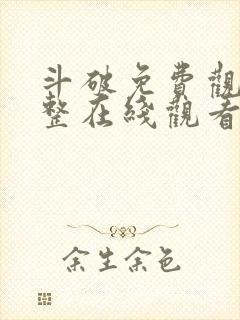 斗破免費觀
整在綫觀看
余生余色